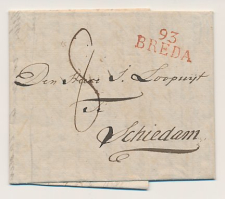 93
BREDA
8
Den Heer J. Loopuyt
te
Schiedam